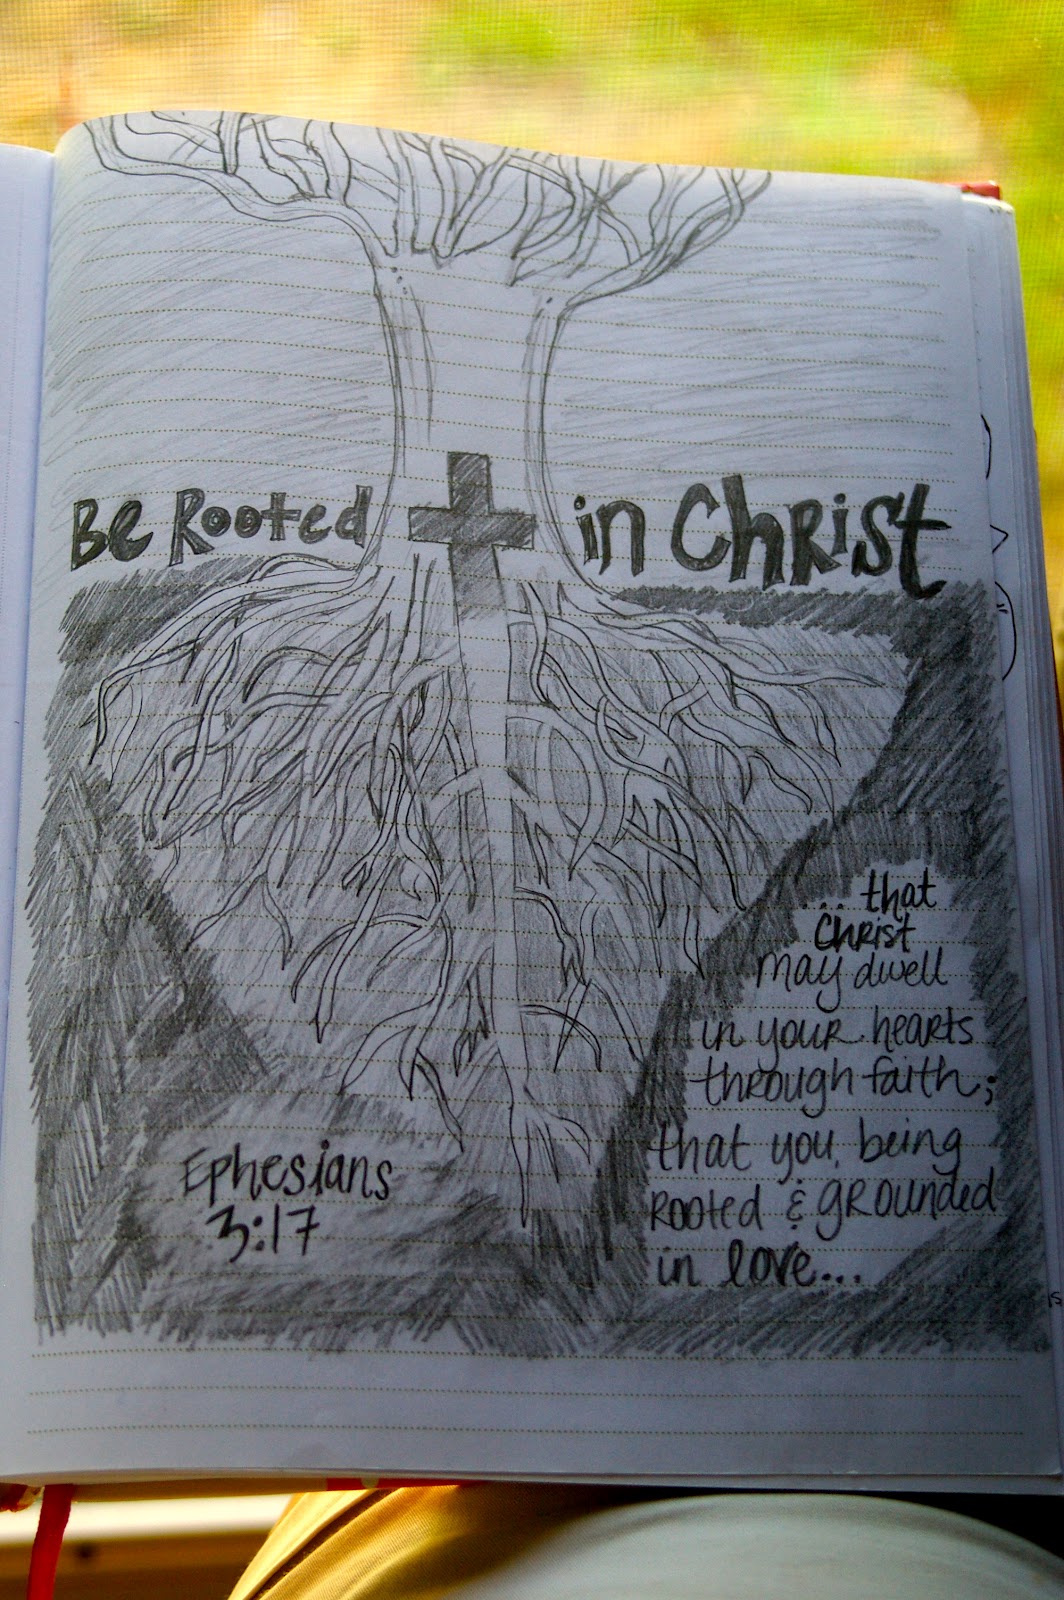 Be Rooted in Christ
... that
Christ
may dwell
in your hearts
through faith;
that you, being
Rooted & grounded
in love...
Ephesians
3:17